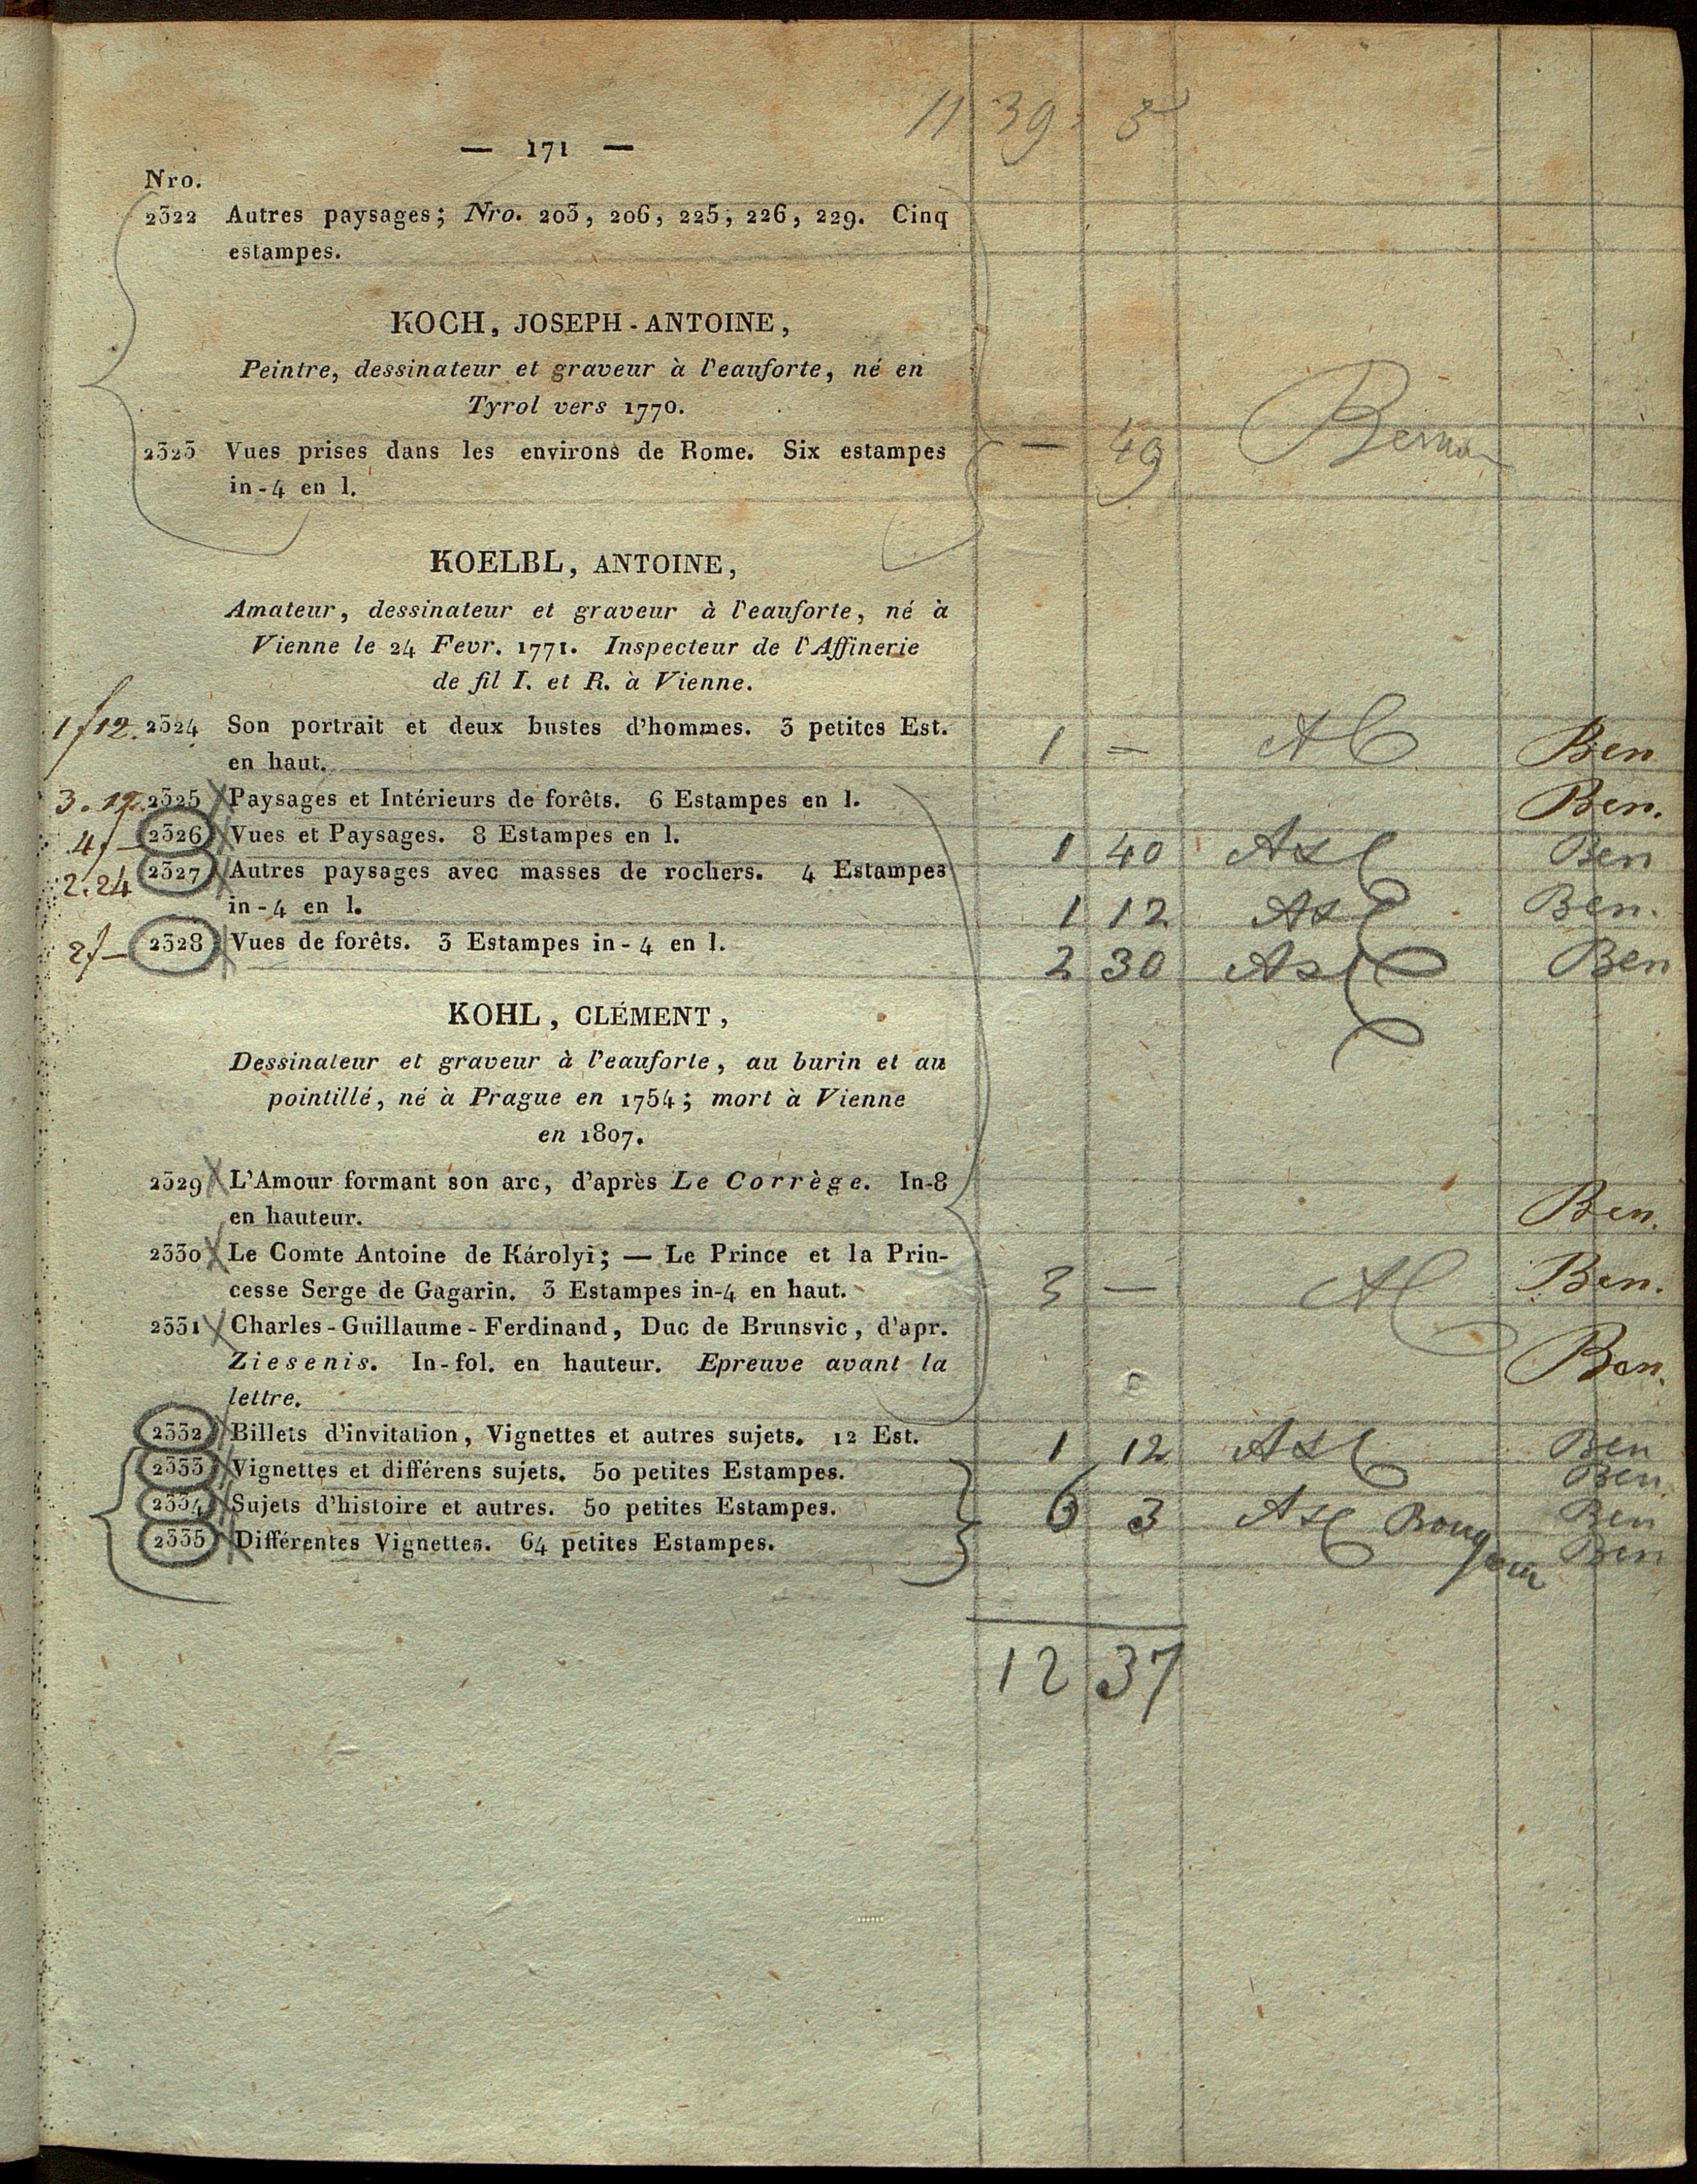 11 39
— 171 —
Nro.
2322 Autres paysages; Nro. 203, 206, 225, 226, 229. Cinq
estampes.
KOCH, JOSEPH-ANTOINE,
Peintre, dessinateur et graveur à l'eauforte, né en
Tyrol vers 1770.
2323 Vues prises dans les environs de Rome. Six estampes — 49
in-4 en l.
KOELBL, ANTOINE,
Amateur, dessinateur et graveur à l'eauforte, né à
Vienne le 24 Fevr. 1771. Inspecteur de l'Affinerie
de fil I. et R. à Vienne.
1f12. 2324 Son portrait et deux bustes d'hommes. 3 petites Est. 1 — Ben
en haut.
2325 Paysages et Intérieurs de forêts. 6 Estampes en l. Ben.
4f— 2326 Vues et Paysages. 8 Estampes en l. 1 40 Ben
2.24 2327 Autres paysages avec masses de rochers. 4 Estampes
in-4 en l. 1 12 Ben.
2f— 2328 Vues de forêts. 3 Estampes in-4 en l. 2 30 Ben
KOHL, CLÉMENT,
Dessinateur et graveur à l'eauforte, au burin et au
pointillé, né à Prague en 1754; mort à Vienne
en 1807.
2329 L'Amour formant son arc, d'après Le Corrège. In-8 Ben.
en hauteur.
2330 Le Comte Antoine de Károlyi; — Le Prince et la Prin-
cesse Serge de Gagarin. 3 Estampes in-4 en haut. 3 — Ben.
2331 Charles-Guillaume-Ferdinand, Duc de Brunsvic, d'apr.
Ziesenis. In-fol. en hauteur. Epreuve avant la Ben.
lettre.
2332 Billets d'invitation, Vignettes et autres sujets. 12 Est. 1 12 Ben
2333 Vignettes et différens sujets. 50 petites Estampes. Ben
2334 Sujets d'histoire et autres. 50 petites Estampes. 6 3 Ben
2335 Différentes Vignettes. 64 petites Estampes. Ben
12 37